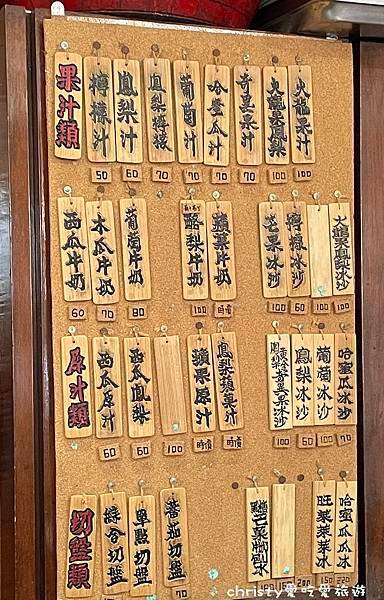 果汁類
檸檬汁
鳳梨汁
鳳梨檸檬
葡萄汁
哈蜜瓜汁
奇異果汁
火龍果鳳梨
火龍果汁
50
60
70
70
70
70
100
100
西瓜牛奶
木瓜牛奶
葡萄牛奶
酪梨牛奶
蘋果牛奶
芒果冰沙
檸檬冰沙
火龍果鳳梨冰沙
60
70
80
100
時價
100
60
100
100
原汁類
西瓜原汁
西瓜鳳梨
蘋果原汁
鳳梨蘋果汁
鳳梨冰沙
葡萄冰沙
哈蜜瓜冰沙
60
60
100
時價
時價
100
60
100
70
切盤類
綜合切盤
單點切盤
蕃茄切盤
芒果
旺萊萊冰
哈蜜瓜瓜冰
70
200
150
220
christy愛吃愛旅遊